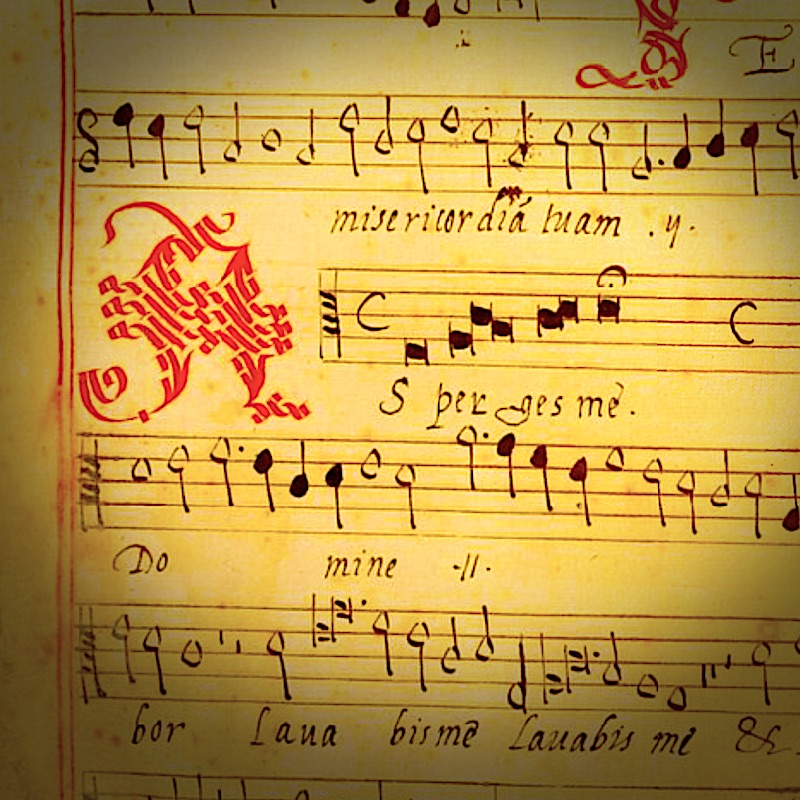 E
misericordiā tuam . y.
A
S per ges mē.
Do mine .//.
bor Laua bis mē Lauabis mē &.